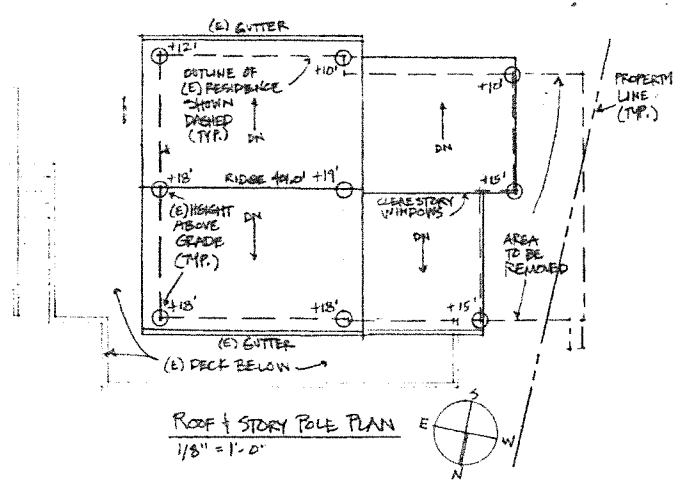 (E) GUTTER
+12'
+10'
+10'
OUTLINE OF
(E) RESIDENCE
SHOWN
DASHED
(TYP.)
DN
DN
PROPERTY
LINE
(TYP.)
+18'
RIDGE 401.0'
+19'
+15'
(E) HEIGHT
ABOVE
GRADE
(TYP.)
DN
CLERESTORY
WINDOWS
DN
AREA
TO BE
REMOVED
+18'
+18'
+15'
(E) GUTTER
(E) DECK BELOW
ROOF & STORY POLE PLAN
1/8" = 1'-0"
S
E
W
N